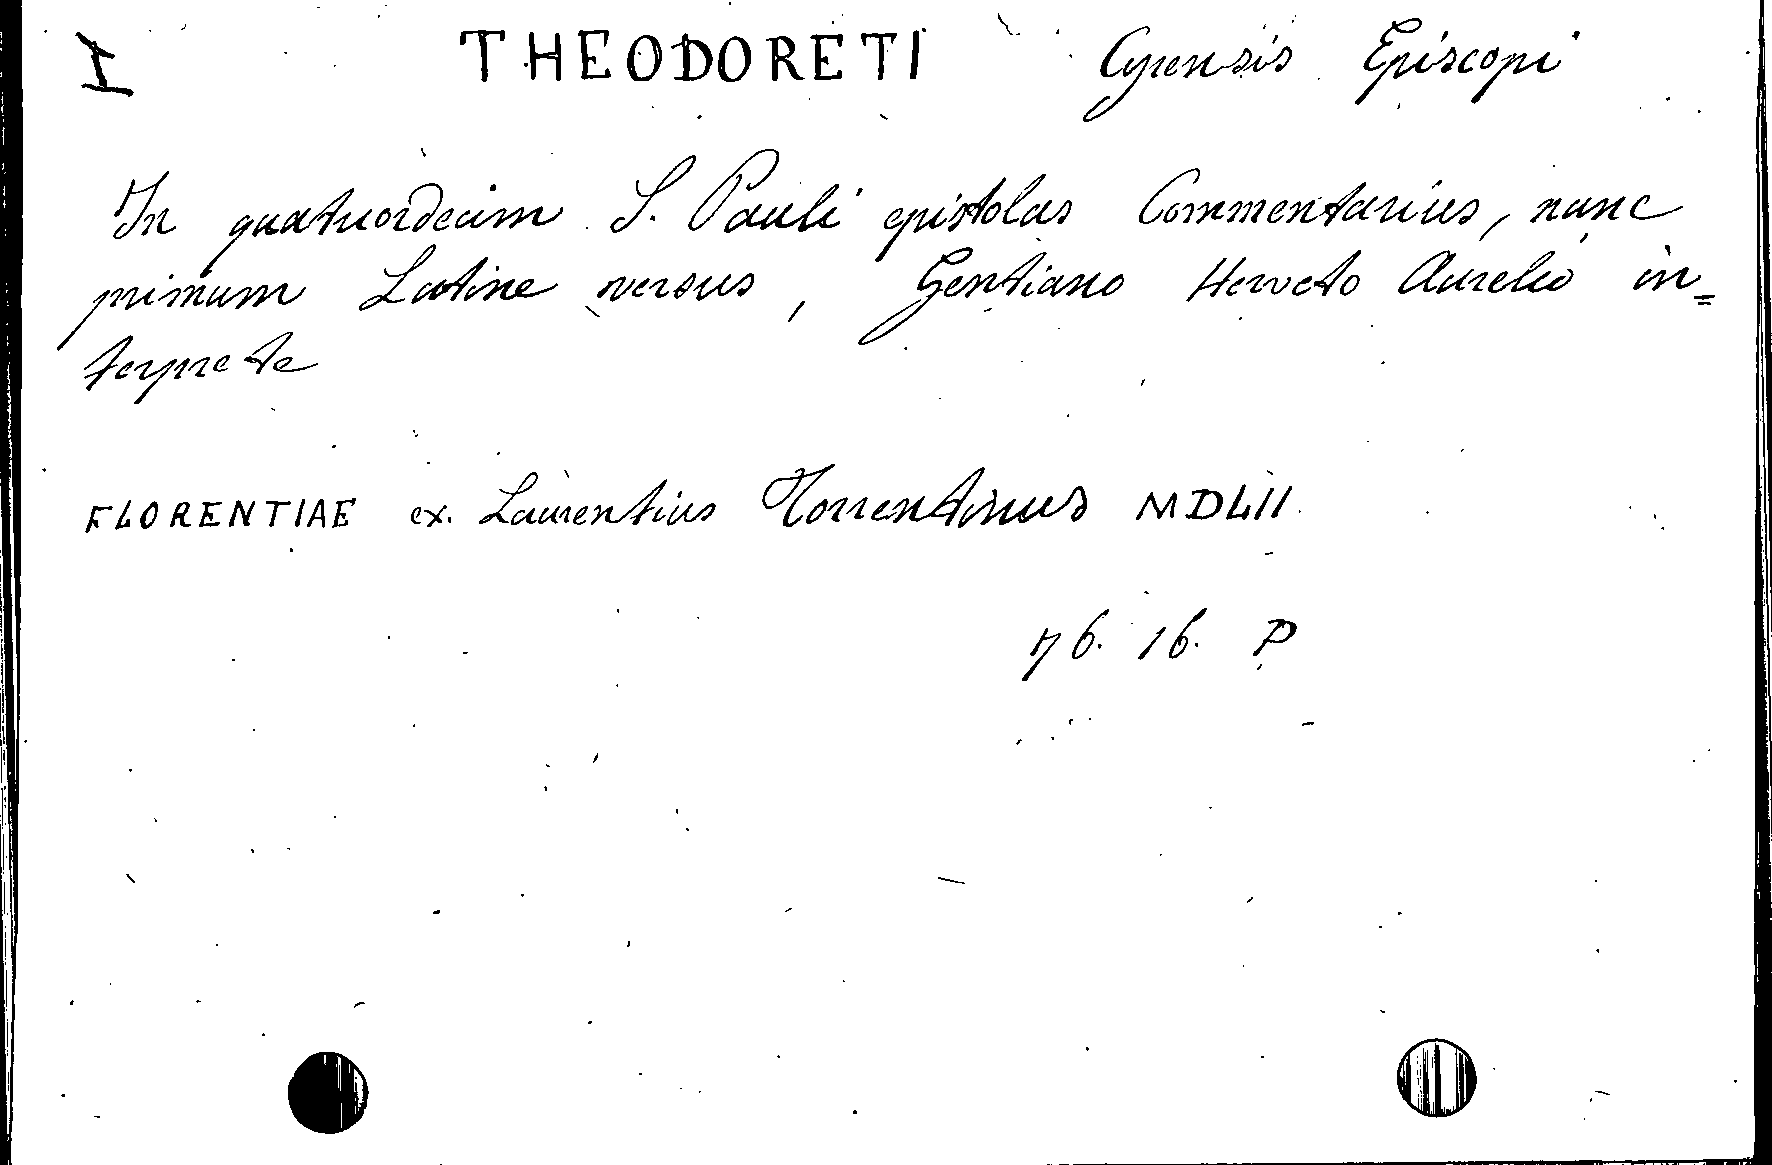 I THEODORETI Cyrensis Episcopi
In quatuordecim S. Pauli epistolas Commentarius, nunc
primum Latine versus, Gentiano Herveto Aurelio in=
terprete
FLORENTIAE ex. Laurentius Torrentinus MDLII
76. 16. P